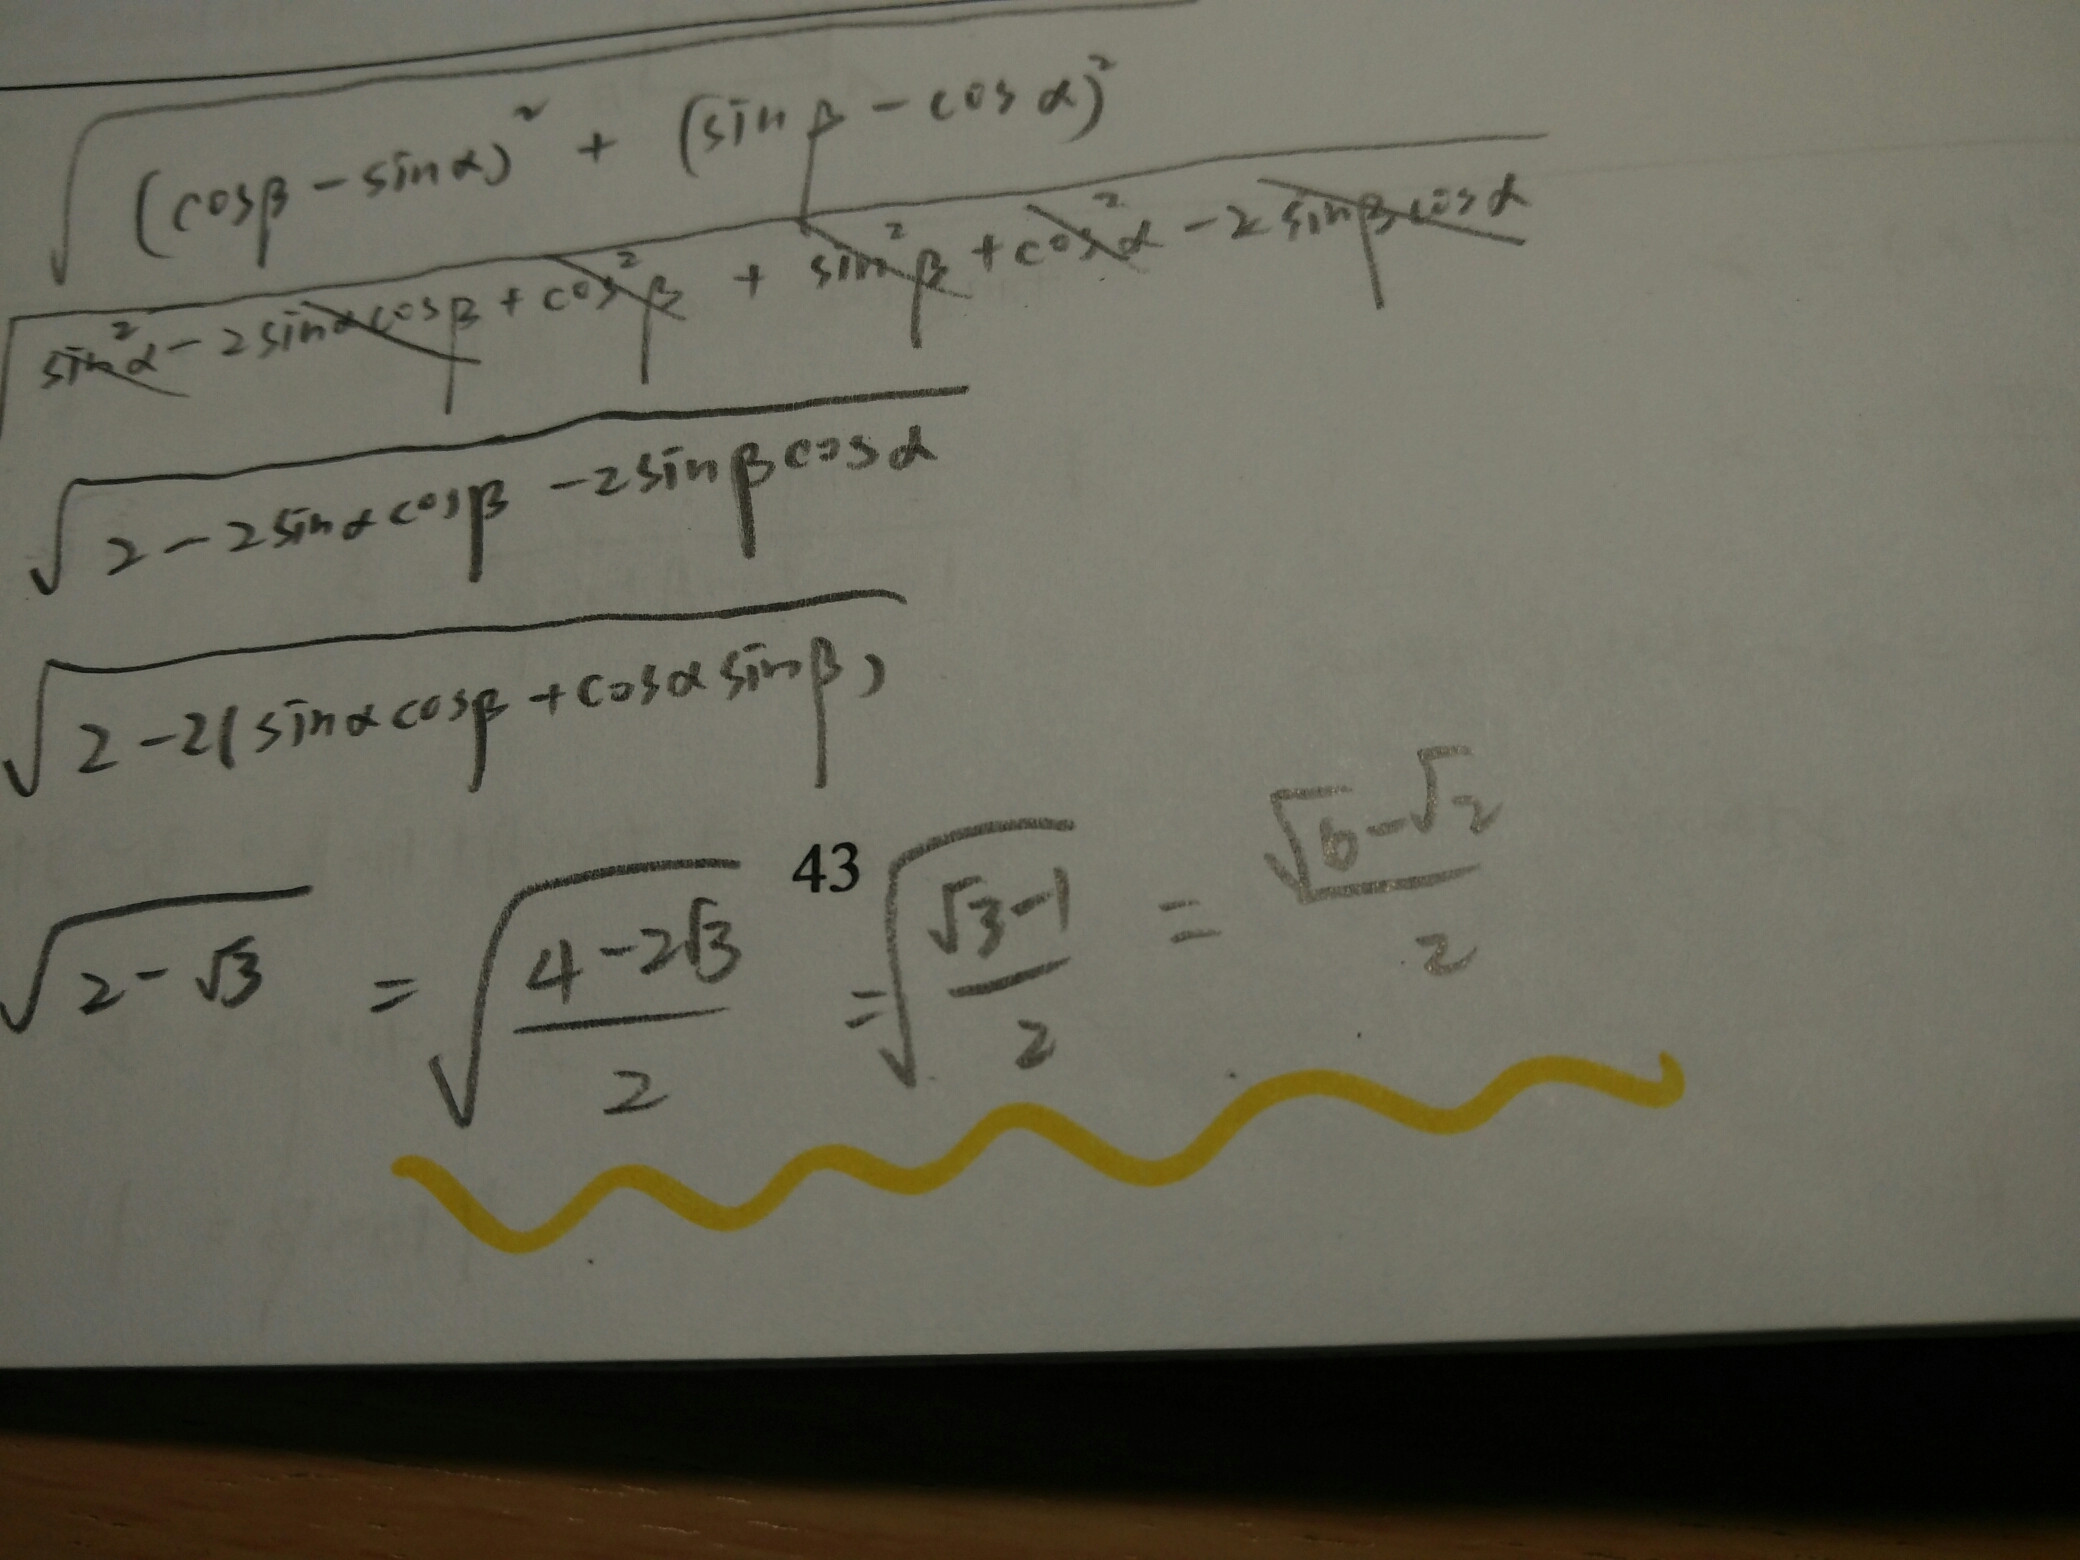 √((cosβ-sinα)² + (sinβ-cosα)²)
√(sin²α-2sinαcosβ+cos²β + sin²β+cos²α-2sinβcosα)
√(2-2sinαcosβ-2sinβcosα)
√(2-2(sinαcosβ+cosαsinβ))
43
√(2-√3) = √((4-2√3)/2) = √((√3-1)/2) = (√6-√2)/2